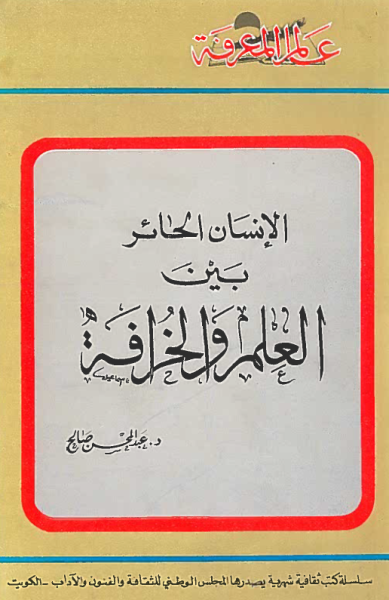 عالم المعرفة
الإنسان الحائر
بين
العلم والخرافة
د. عبد المحسن صالح
سلسلة كتب ثقافية شهرية يصدرها المجلس الوطني للثقافة والفنون والآداب - الكويت